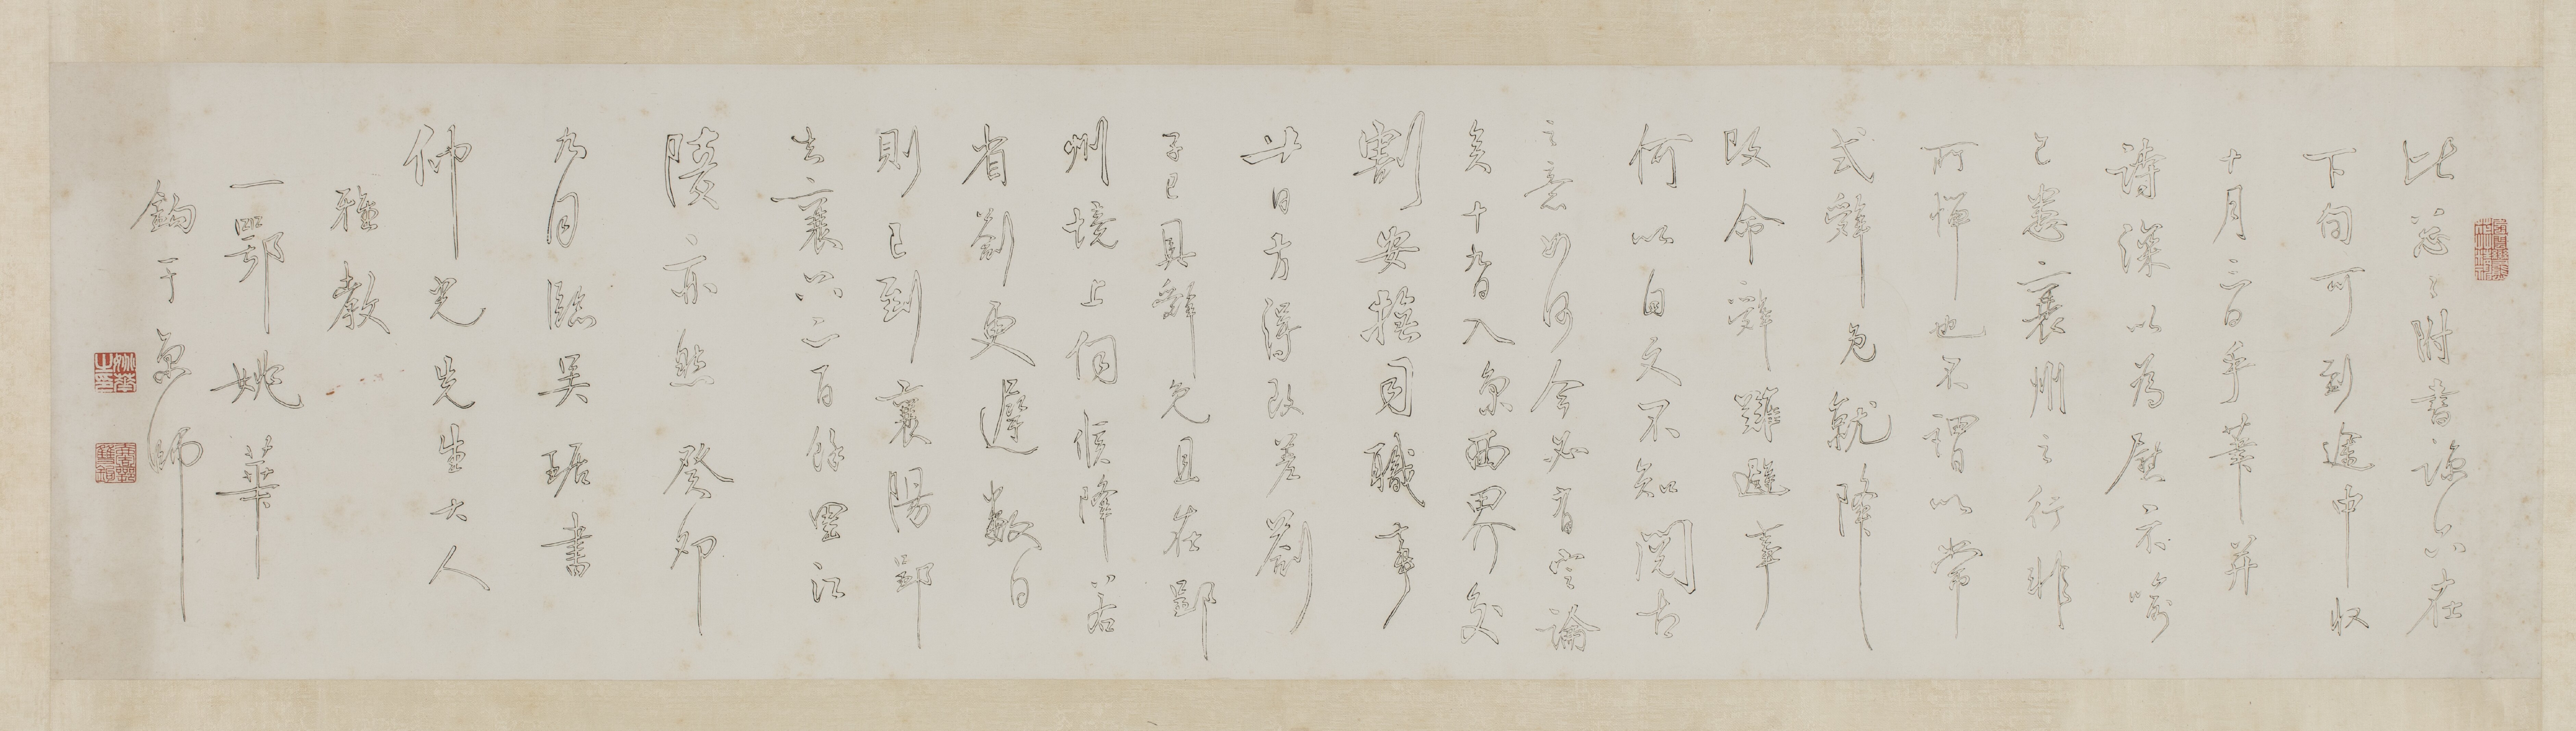 比忽忽附書諒只在
下旬可到途中收
十月三日手筆并
詩深以為慰示喻
已悉襄州之行非
所憚也不謂以常
式辭免就降
改命辭難避事
何以自文不知閱古
之意如何今必有定論
矣十九日入京西界交
割安撫司職事
廿日方得改差劄
子已具辭免且在郢
州境上伺候降若
省劄更遲數日
則已到襄陽郢
去襄只二百餘里江
陵亦然癸卯
九月臨吳琚書
仲光先生大人
雅教
一鄂姚華
鉤于京師
姚華之印